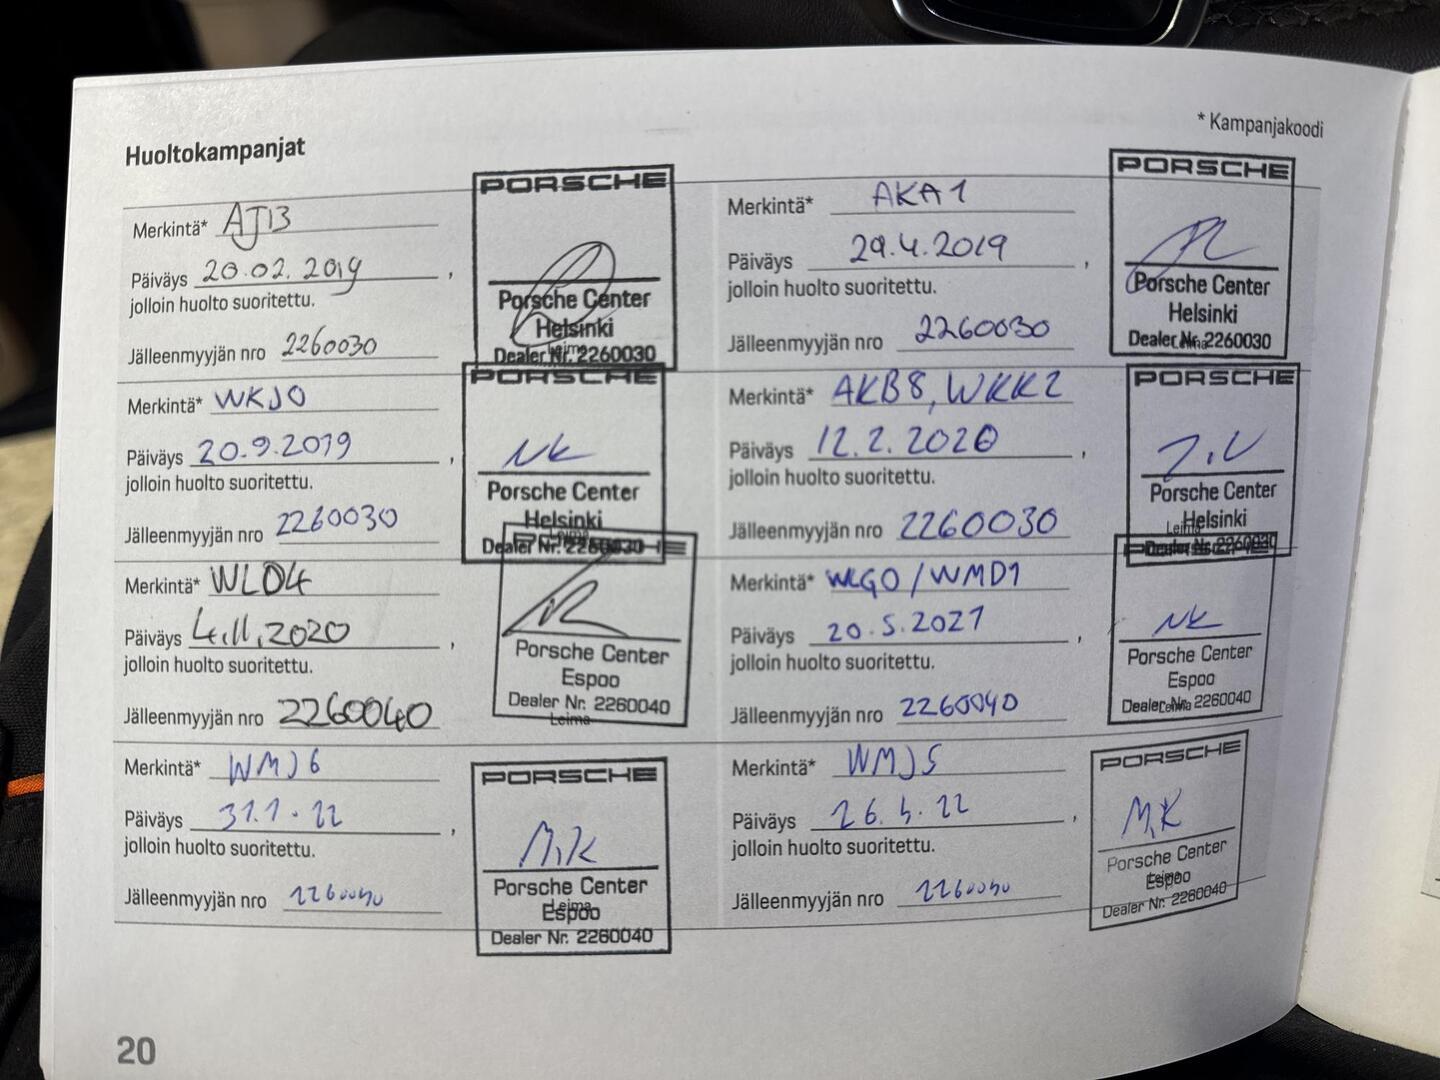 * Kampanjakoodi
Huoltokampanjat
Merkintä* AJ13
Päiväys 20.02.2019,
jolloin huolto suoritettu.
Jälleenmyyjän nro 2260030
PORSCHE
Porsche Center
Helsinki
Leima
Dealer Nr. 2260030
Merkintä* AKA1
Päiväys 29.4.2019,
jolloin huolto suoritettu.
Jälleenmyyjän nro 2260030
PORSCHE
Porsche Center
Helsinki
Leima
Dealer Nr. 2260030
Merkintä* WKJ0
Päiväys 20.9.2019,
jolloin huolto suoritettu.
Jälleenmyyjän nro 2260030
PORSCHE
NK
Porsche Center
Helsinki
Leima
Dealer Nr. 2260030
Merkintä* AKB8, WKK2
Päiväys 12.2.2020,
jolloin huolto suoritettu.
Jälleenmyyjän nro 2260030
PORSCHE
Porsche Center
Helsinki
Leima
Dealer Nr. 2260030
Merkintä* WL04
Päiväys 4.11.2020,
jolloin huolto suoritettu.
Jälleenmyyjän nro 2260040
PORSCHE
Porsche Center
Espoo
Dealer Nr. 2260040
Leima
Merkintä* WLG0/WMD1
Päiväys 20.5.2021,
jolloin huolto suoritettu.
Jälleenmyyjän nro 2260040
PORSCHE
NK
Porsche Center
Espoo
Dealer Nr. 2260040
Leima
Merkintä* WMJ6
Päiväys 31.1.22,
jolloin huolto suoritettu.
Jälleenmyyjän nro 2260040
PORSCHE
M.K
Porsche Center
Espoo
Leima
Dealer Nr. 2260040
Merkintä* WMJ5
Päiväys 26.4.22,
jolloin huolto suoritettu.
Jälleenmyyjän nro 2260040
PORSCHE
M.K
Porsche Center
Espoo
Leima
Dealer Nr. 2260040
20